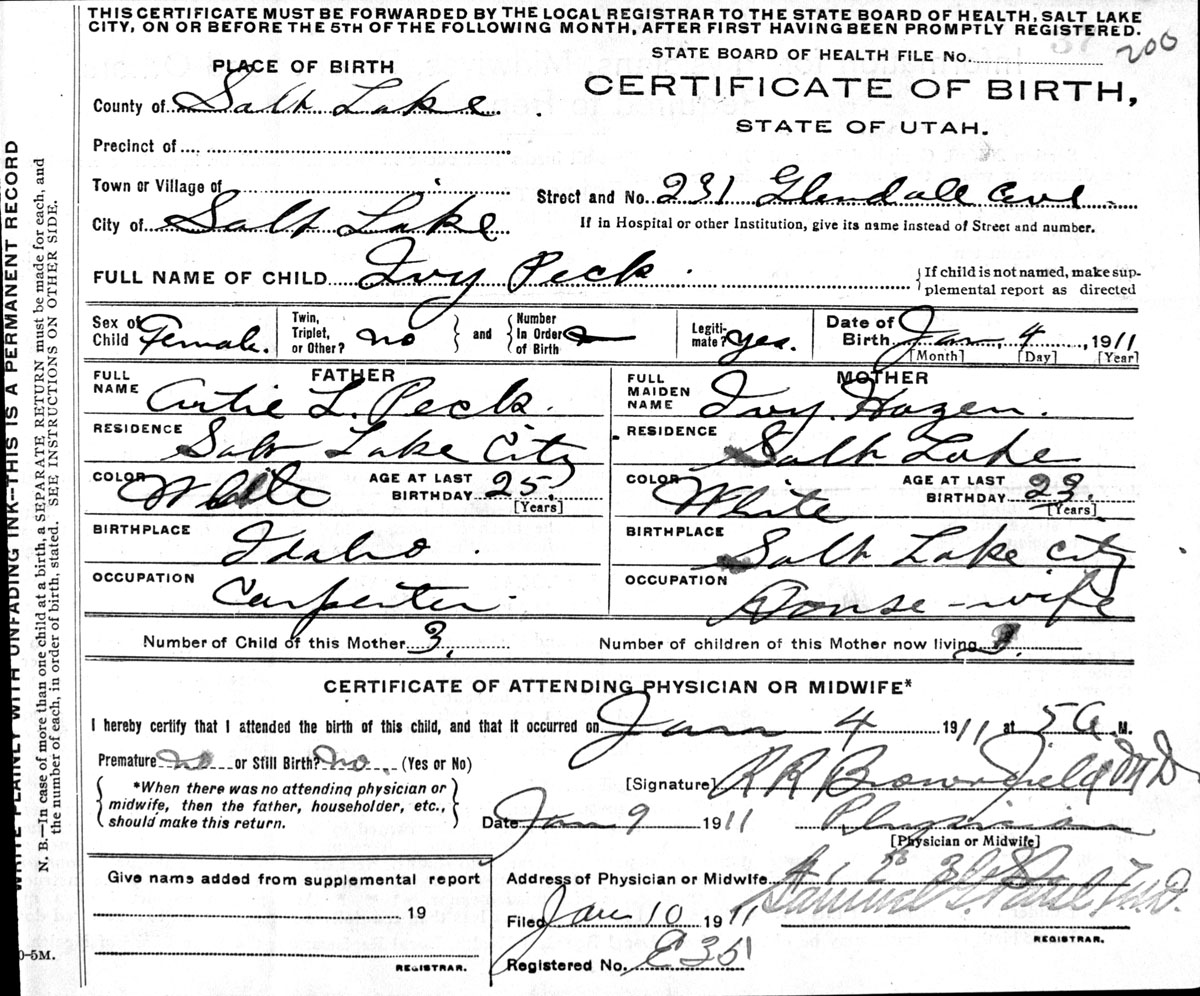 THIS CERTIFICATE MUST BE FORWARDED BY THE LOCAL REGISTRAR TO THE STATE BOARD OF HEALTH, SALT LAKE
CITY, ON OR BEFORE THE 5TH OF THE FOLLOWING MONTH, AFTER FIRST HAVING BEEN PROMPTLY REGISTERED.
STATE BOARD OF HEALTH FILE No. 200
PLACE OF BIRTH
CERTIFICATE OF BIRTH,
STATE OF UTAH.
County of Salt Lake
Precinct of
Town or Village of
Street and No. 231 Glendale Ave.
City of Salt Lake
If in Hospital or other Institution, give its name instead of Street and number.
FULL NAME OF CHILD Ivy Peck
If child is not named, make sup-
plemental report as directed
Sex of Child Female.
Twin, Triplet, or Other? no
and
Number In Order of Birth
Legiti-mate? yes.
Date of Birth Jan. 4, 1911
[Month] [Day] [Year]
FATHER
FULL NAME Artie L. Peck.
RESIDENCE Salt Lake City
COLOR White
AGE AT LAST BIRTHDAY 25.
[Years]
BIRTHPLACE Idaho.
OCCUPATION Carpenter.
MOTHER
FULL MAIDEN NAME Ivy Hazen.
RESIDENCE Salt Lake
COLOR White
AGE AT LAST BIRTHDAY 23.
[Years]
BIRTHPLACE Salt Lake City
OCCUPATION House-wife
Number of Child of this Mother 3.
Number of children of this Mother now living
CERTIFICATE OF ATTENDING PHYSICIAN OR MIDWIFE*
I hereby certify that I attended the birth of this child, and that it occurred on Jan 4 1911 at 5 A. M.
Premature no or Still Birth? no. (Yes or No)
*When there was no attending physician or
midwife, then the father, householder, etc.,
should make this return.
[Signature] R R Brownfield M D
Date Jan 9 1911 Physician
[Physician or Midwife]
Give name added from supplemental report
19
REGISTRAR.
Address of Physician or Midwife.
Filed Jan 10 1911 Samuel G. Paul M.D.
REGISTRAR.
Registered No. E35
WRITE PLAINLY WITH UNFADING INK--THIS IS A PERMANENT RECORD
N. B.—In case of more than one child at a birth, a SEPARATE RETURN must be made for each, and
the number of each, in order of birth, stated. SEE INSTRUCTIONS ON OTHER SIDE.
0-5M.